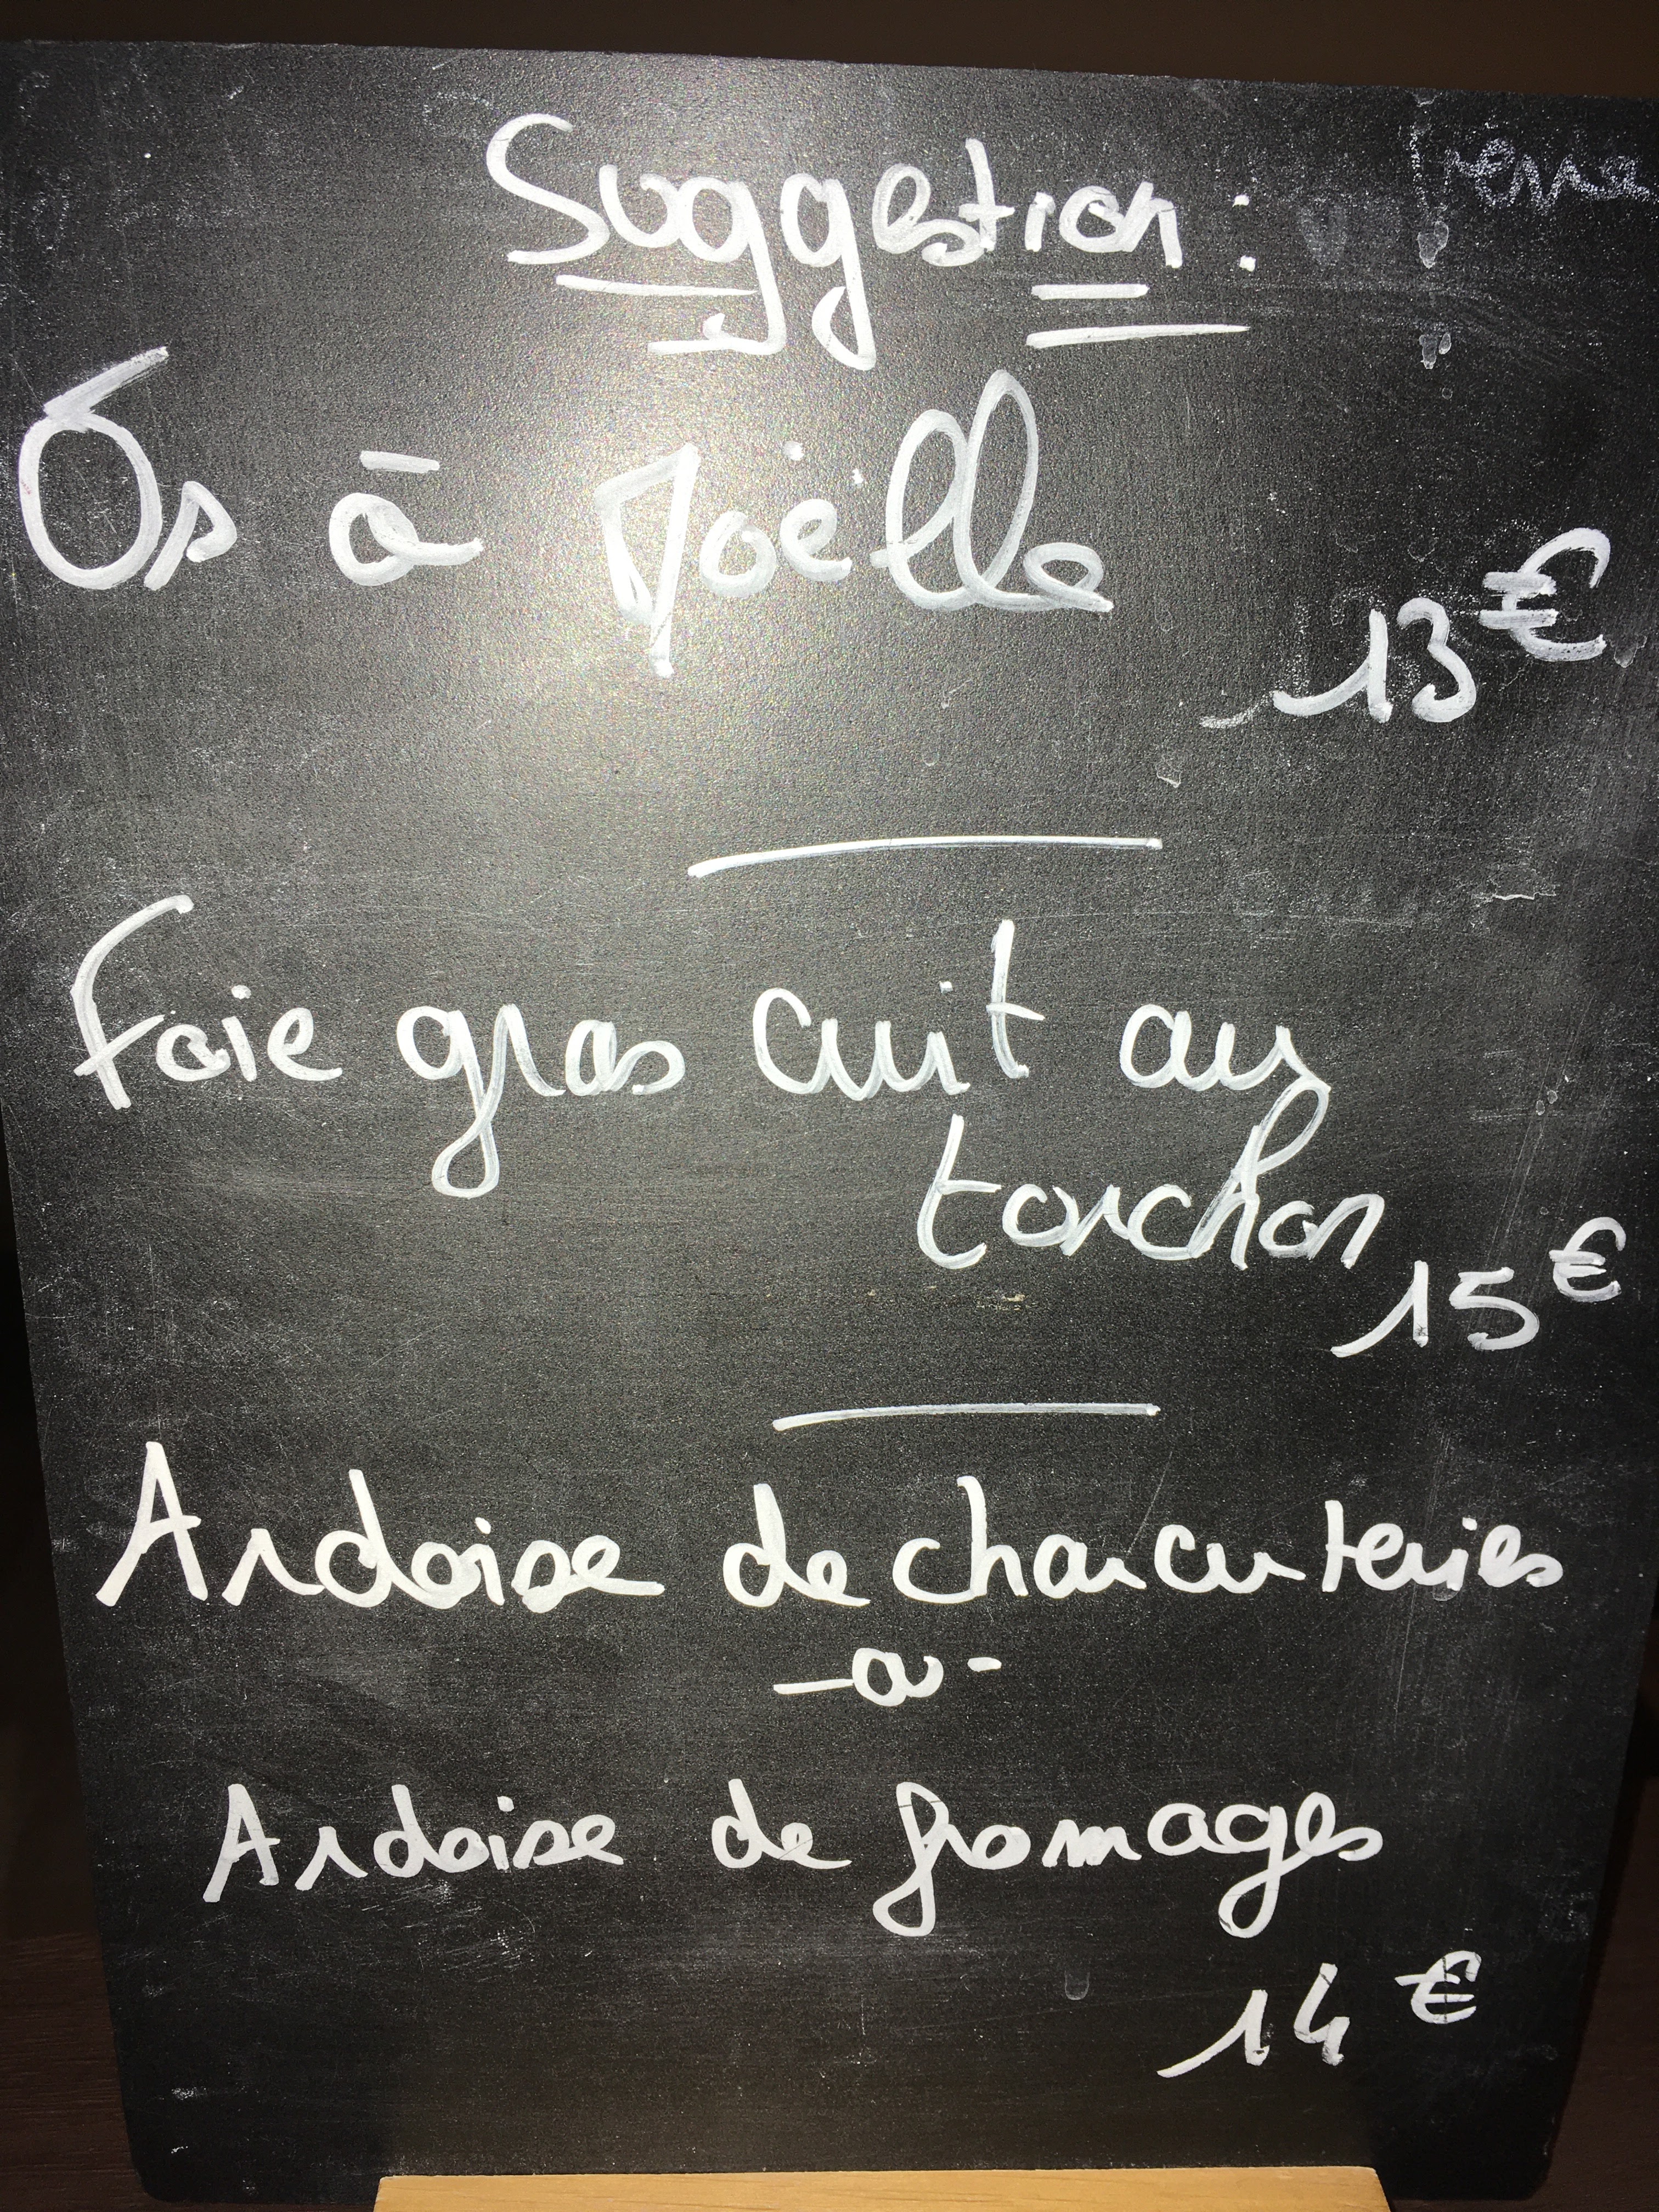 Suggestion :
Os à Moëlle
13€
Foie gras cuit au
torchon
15€
Ardoise de charcuteries
-ou-
Ardoise de fromages
14€